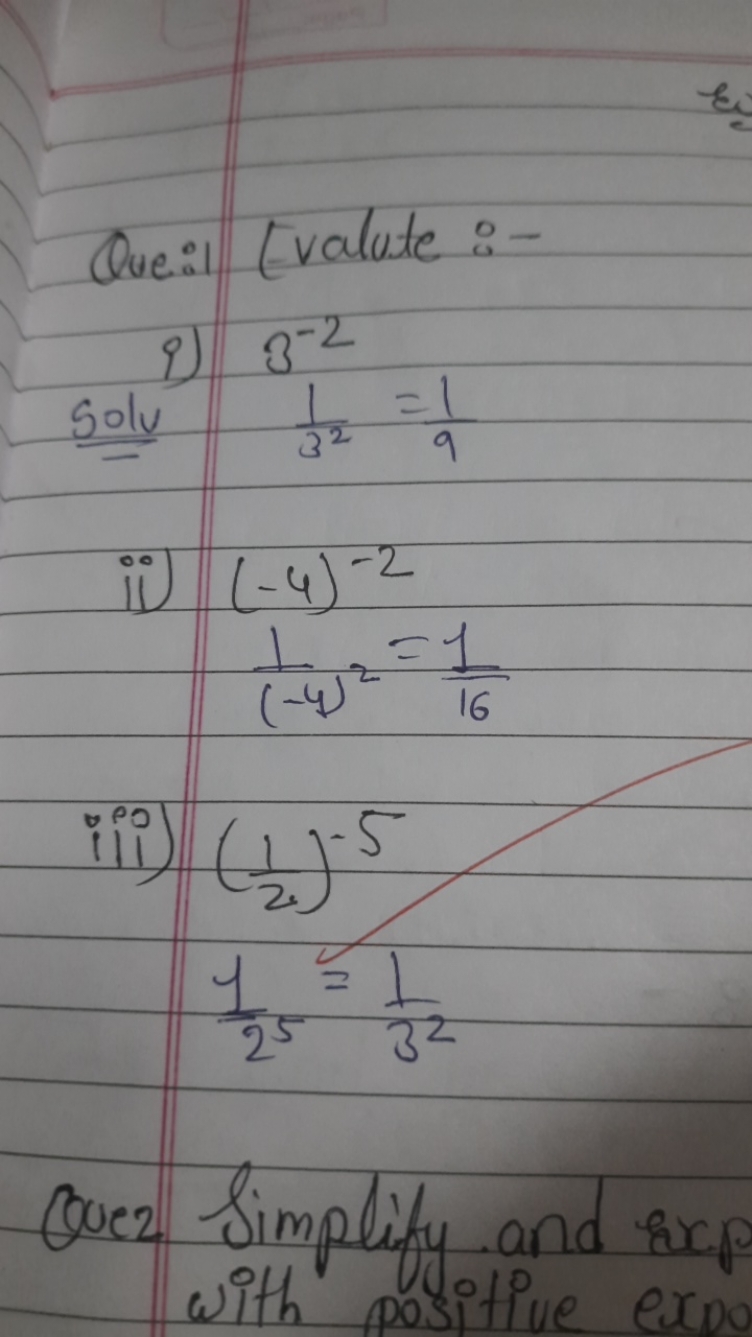 Que:1 Evalute :-
i) 3⁻²
Solv 1/3² = 1/9
ii) (-4)⁻²
1/(-4)² = 1/16
iii) (1/2)⁻⁵
1/2⁵ = 1/3²
Que2 Simplify and exp
with positive expo